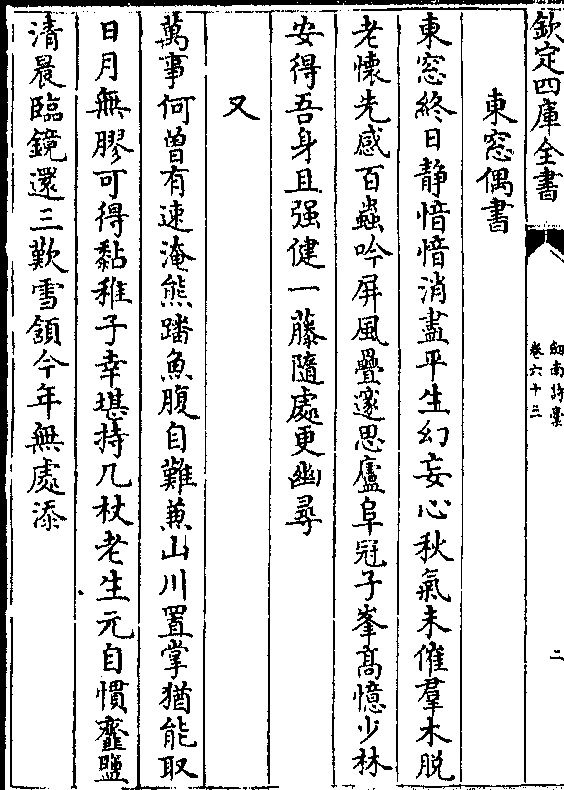 欽定四庫全書
劒南詩稾
卷六十三
二
東窓偶書
東窓終日静愔愔消盡平生幻妄心秋氣未催羣木脱
老懷先感百蟲吟屏風疊邃思廬阜冠子峯髙憶少林
安得吾身且强健一藤隨處更幽尋
又
萬事何曾有速淹熊蹯魚腹自難兼山川置掌猶能取
日月無膠可得黏稚子幸堪持几杖老生元自慣虀鹽
清晨臨鏡還三歎雪頷今年無處添